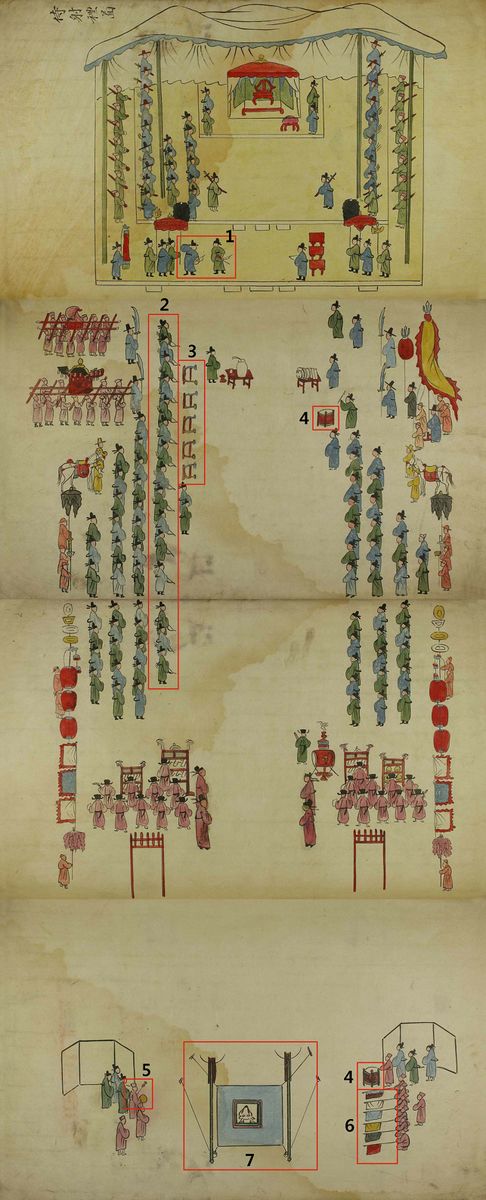 侍射禮圖
1
2
3
4
5
4
6
7